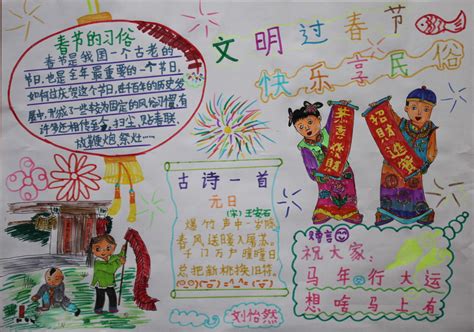 文明过春节
快乐享民俗
春节的习俗
春节是我国一个古老的
节日，也是全年最重要的一个节日，
如何过庆贺这个节日，在千百年的历史发
展中，形成了一些较为固定的风俗习惯，有
许多还相传至今，扫尘，贴春联，
放鞭炮，祭灶……
恭喜发财
招财进宝
古诗一首
元日
(宋)王安石
爆竹声中一岁除，
春风送暖入屠苏。
千门万户曈曈日
总把新桃换旧符。
刘怡然
寄言
祝大家：
马年行大运
想啥马上有